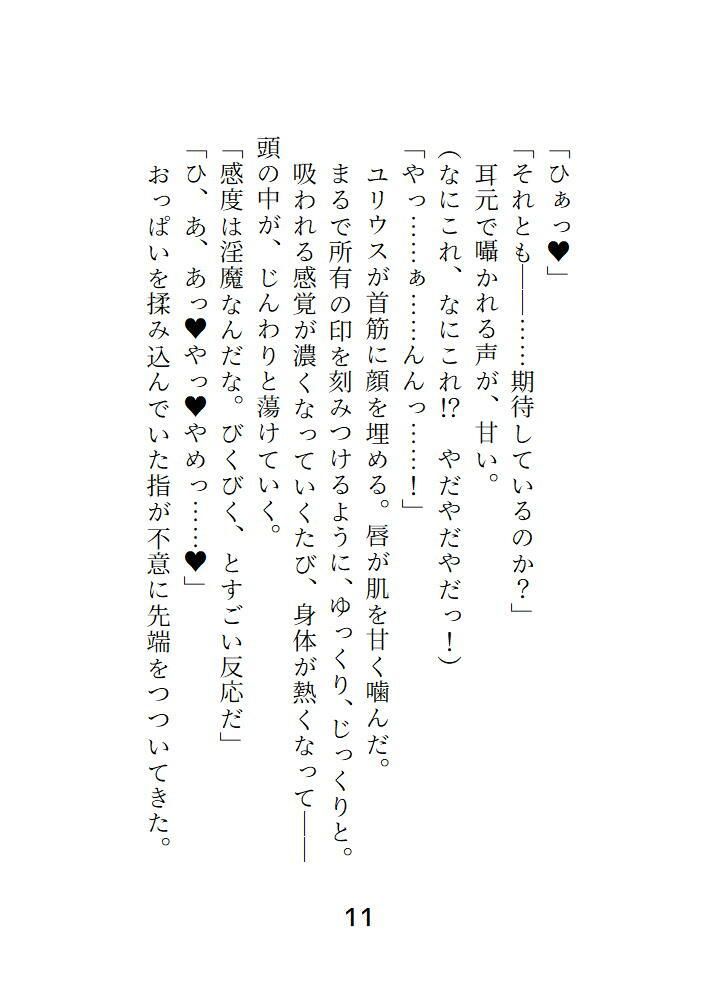 「ひぁっ♥」
「それとも――……期待しているのか？」
　耳元で囁かれる声が、甘い。
（なにこれ、なにこれ!?　やだやだやだっ！）
「やっ……ぁ……んんっ……！」
　ユリウスが首筋に顔を埋める。唇が肌を甘く噛んだ。
　まるで所有の印を刻みつけるように、ゆっくり、じっくりと。
　吸われる感覚が濃くなっていくたび、身体が熱くなって――
頭の中が、じんわりと蕩けていく。
「感度は淫魔なんだな。びくびく、とすごい反応だ」
「ひ、あ、あっ♥やっ♥やめっ……♥」
　おっぱいを揉み込んでいた指が不意に先端をつついてきた。
11